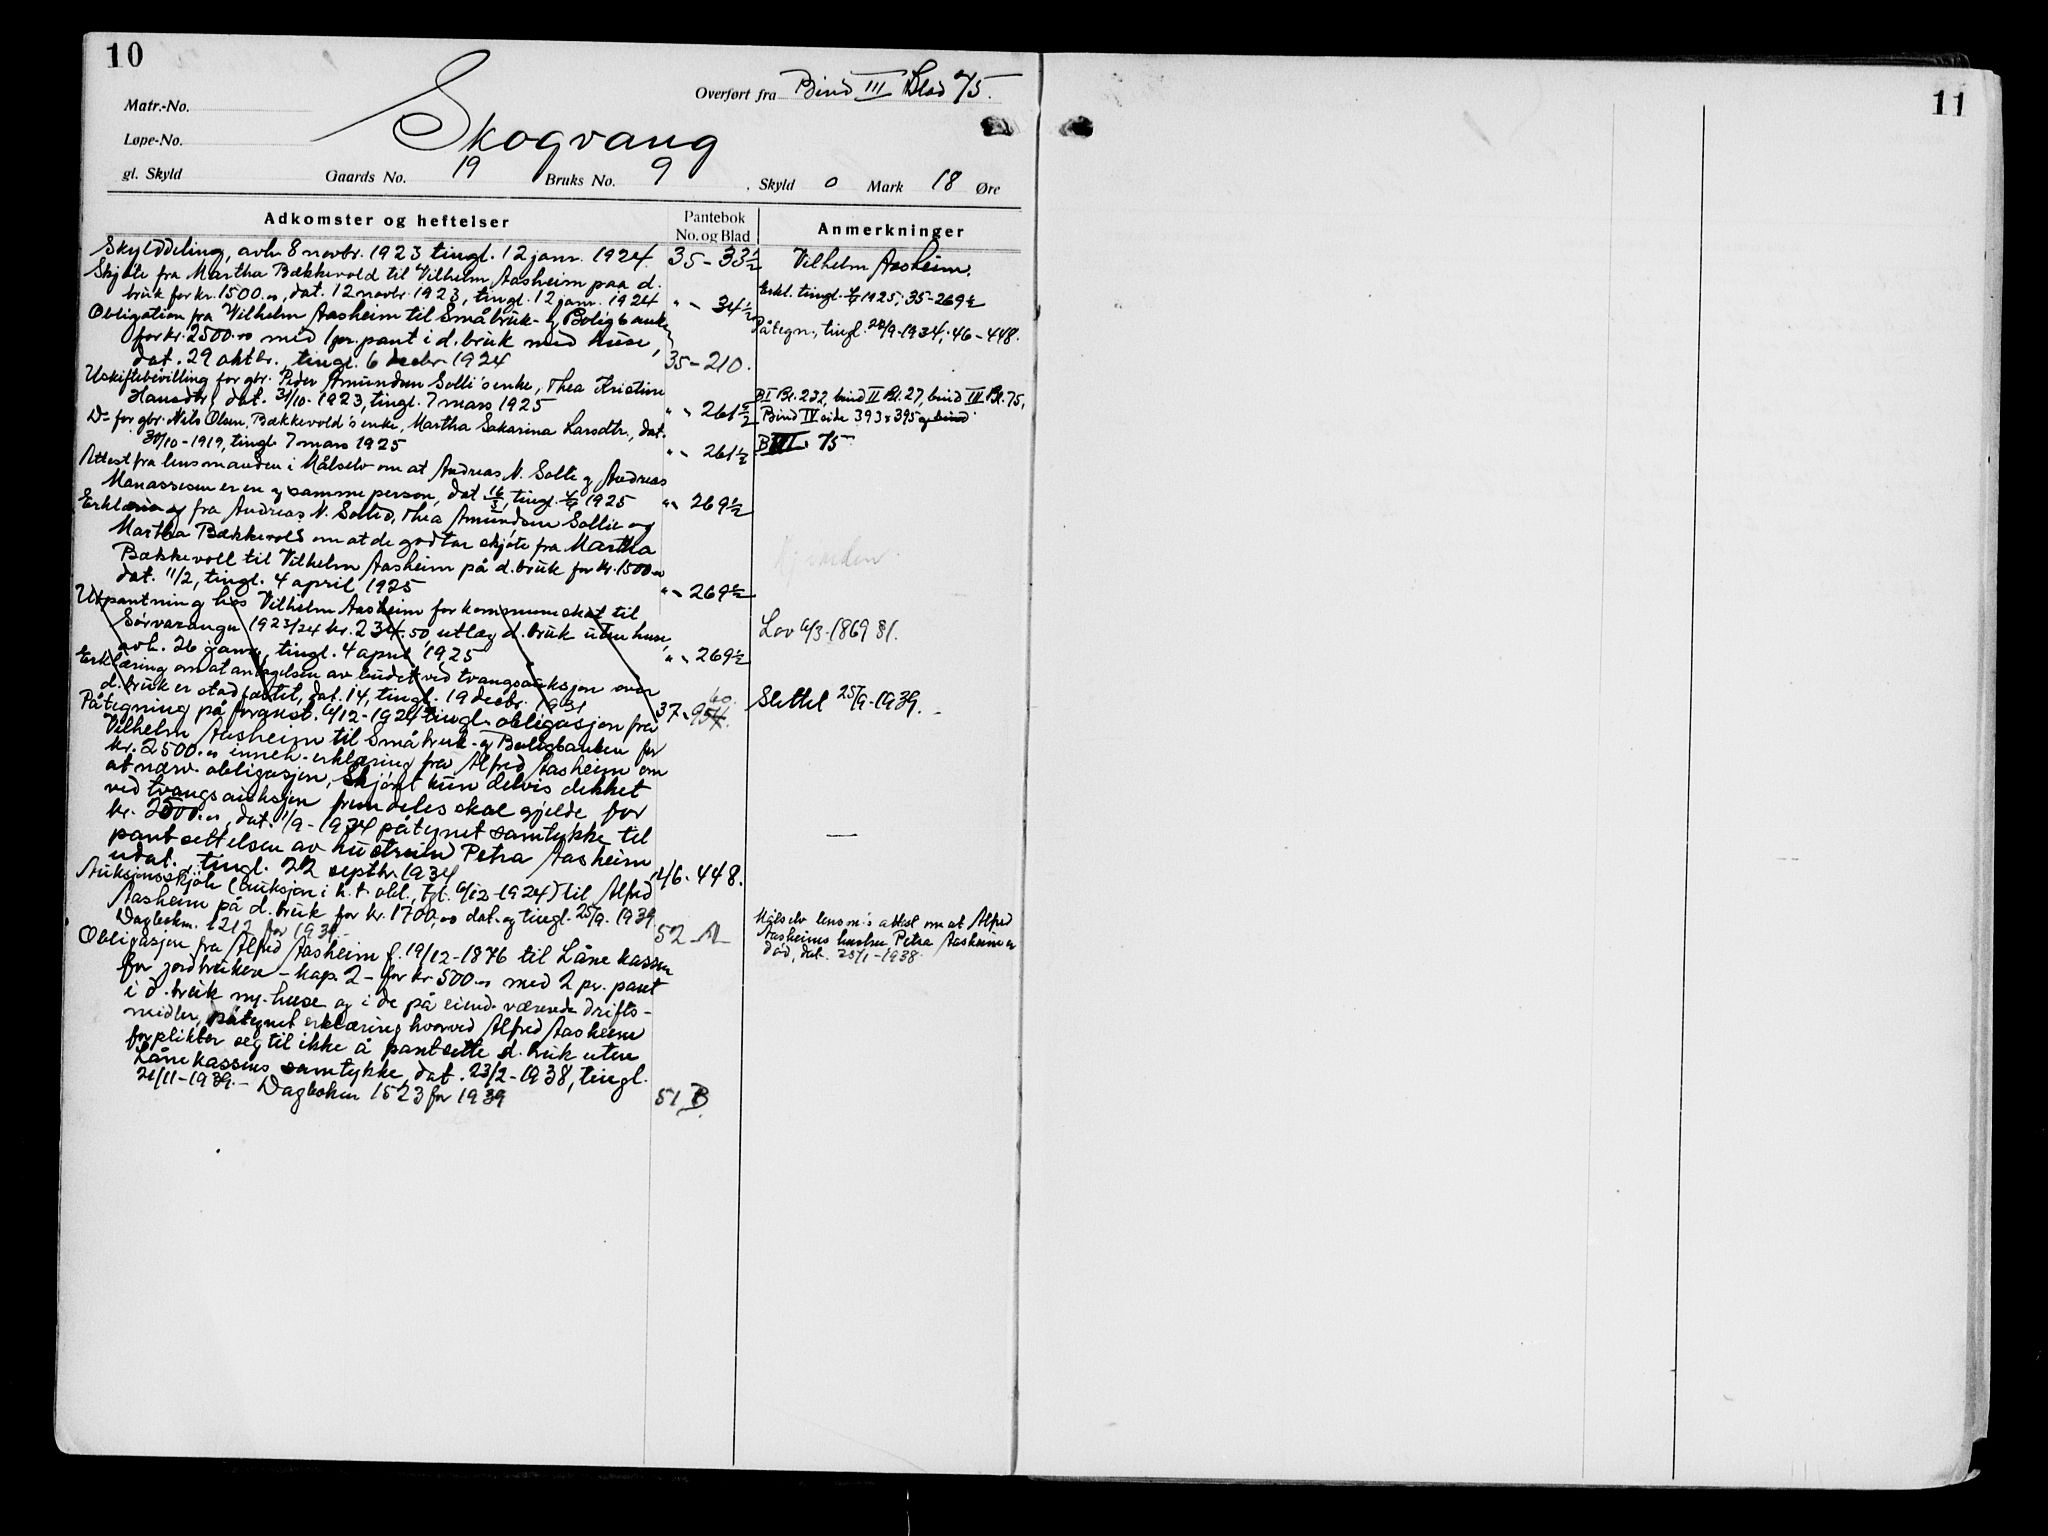 10
Overført fra Bind III Blad 75.
Matr.-No.
Skogvang
Løpe-No.
gl. Skyld Gaards No. 19 Bruks No. 9 . Skyld 0 Mark 18 Øre
Adkomster og heftelser
Pantebok
No. og Blad
Anmerkninger
Skylddeling, avh. 8 novbr. 1923 tingl. 12 janr. 1924. 35-33½ Vilhelm Aasheim.
Skjøte fra Martha Bækkevold til Vilhelm Aasheim paa d.
bruk for kr. 1500.00, dat. 12 novbr. 1923, tingl. 12 janr. 1924 " - 34½
Erkl. tingl. 4/4 1925, 35-269½
Obligation fra Vilhelm Aasheim til Småbruk- og Boligbanken
for kr. 2500.00 med 1 pr. pant i d. bruk med huse,
dat. 29 oktbr., tingl. 6 decbr. 1924 35-210.
Påtegn., tingl. 22/9-1934, 46-448.
Uskiftebevilling for gbr. Peder Amundsen Solli's enke, Thea Kristine
Hansdtr., dat. 31/10-1923, tingl. 7 mars 1925 " - 261½
B I Bl. 232, bind II Bl. 27, bind III Bl. 75,
Bind IV side 393 & 395
Do for gbr. Nils Olsen Bækkevold's enke, Martha Sakarina Larsdtr., dat.
30/10-1919, tingl. 7 mars 1925 " - 261½
B III. 75
Attest fra lensmanden i Målselv om at Andreas N. Solli og Andreas
Manassesen er en og samme person, dat. 16/3, tingl. 4/4 1925 " - 269½
Erklæring fra Andreas N. Sollid, Thea Amundsen Sollie og
Martha Bækkevold om at de godtar skjøte fra Martha
Bækkevoll til Vilhelm Aasheim på d. bruk for kr. 1500.00
dat. 11/2, tingl. 4 april 1925 " - 269½
Utpantning hos Vilhelm Aasheim for kommuneskat til
Sørvaranger 1923/24 kr. 234.50 utlæg d. bruk uten huse,
avh. 26 janr., tingl. 4 april 1925 " - 269½
Lov 6/3-1869 §1.
Erklæring om at antagelsen av budet ved tvangsauksjon over
d. bruk er stadfæstet, dat. 14, tingl. 19 decbr. 1931 37-
Slettet 25/9-1939.
Påtegning på foranst. 6/12-1924 tingl. obligasjon fra
Vilhelm Aasheim til Småbruk- og Boligbanken for
kr. 2500.00 inneh. erklæring fra Alfred Aasheim om
at nærv. obligasjon, skjønt kun delvis dekket
ved tvangsauksjon fremdeles skal gjelde for
kr. 2500.00, dat. 1/9-1934 påtegnet samtykke til
pantsettelsen av hustruen Petra Aasheim
udat., tingl. 22 septbr. 1934 46-448.
Auksjonsskjøte (auksjon i h. t. obl., tgl. 6/12-1924) til Alfred
Aasheim på d. bruk for kr. 1700,00 dat. og tingl. 25/9 1939
Dagbokn. 1212 for 1939.- 52 A
Målselv lensm.'s attest om at Alfred
Aasheims hustru Petra Aasheim er
død, dat. 25/1-1938.
Obligasjon fra Alfred Aasheim f. 19/12-1876 til Lånekassen
for jordbrukere - kap. 2 - for kr. 500.00 med 2 pr. pant
i d. bruk m. huse og i de på eiend. værende drifts-
midler, påtegnet erklæring hvorved Alfred Aasheim
forplikter seg til ikke å pantsette d. bruk uten
Lånekassens samtykke, dat. 23/2-1938, tingl.
21/11-1939.- Dagboken 1523 for 1939 51 B
11